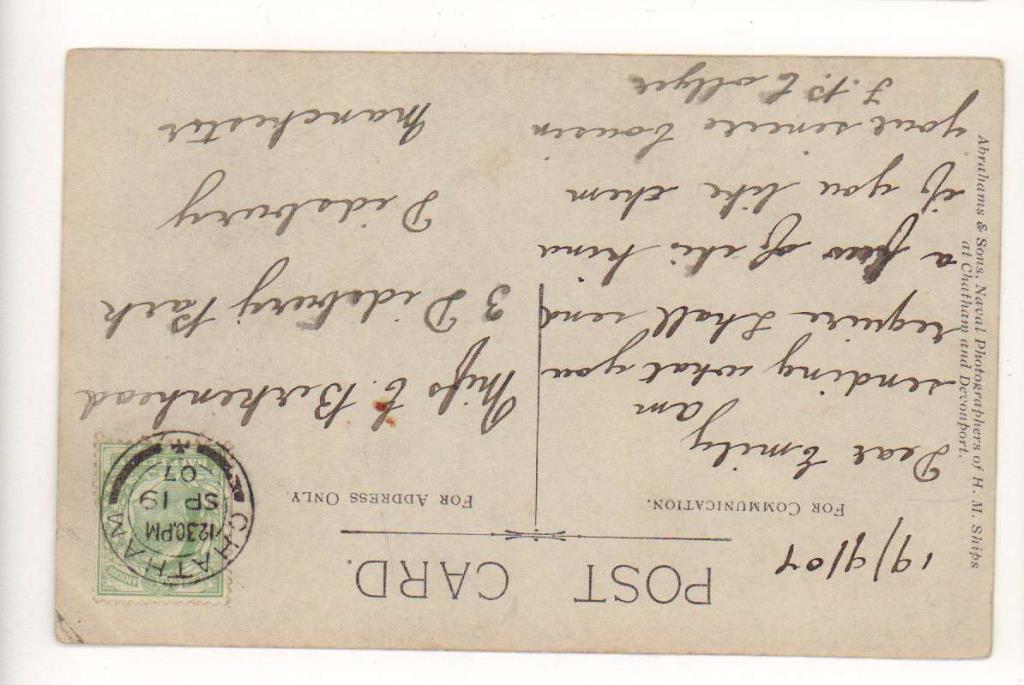 POST CARD.
19/9/07
FOR COMMUNICATION.
FOR ADDRESS ONLY.
Abrahams & Sons, Naval Photographers of H. M. Ships
at Chatham and Devonport.
Dear Emily
Jam
sending what you
require Shall send
a few of this kind
if you like them
your sincere Cousin
J. P. Collyer
Miss E. Birkenhead
3 Didsbury Park
Didsbury
Manchester
CHATHAM
12.30.PM
SP 19
07